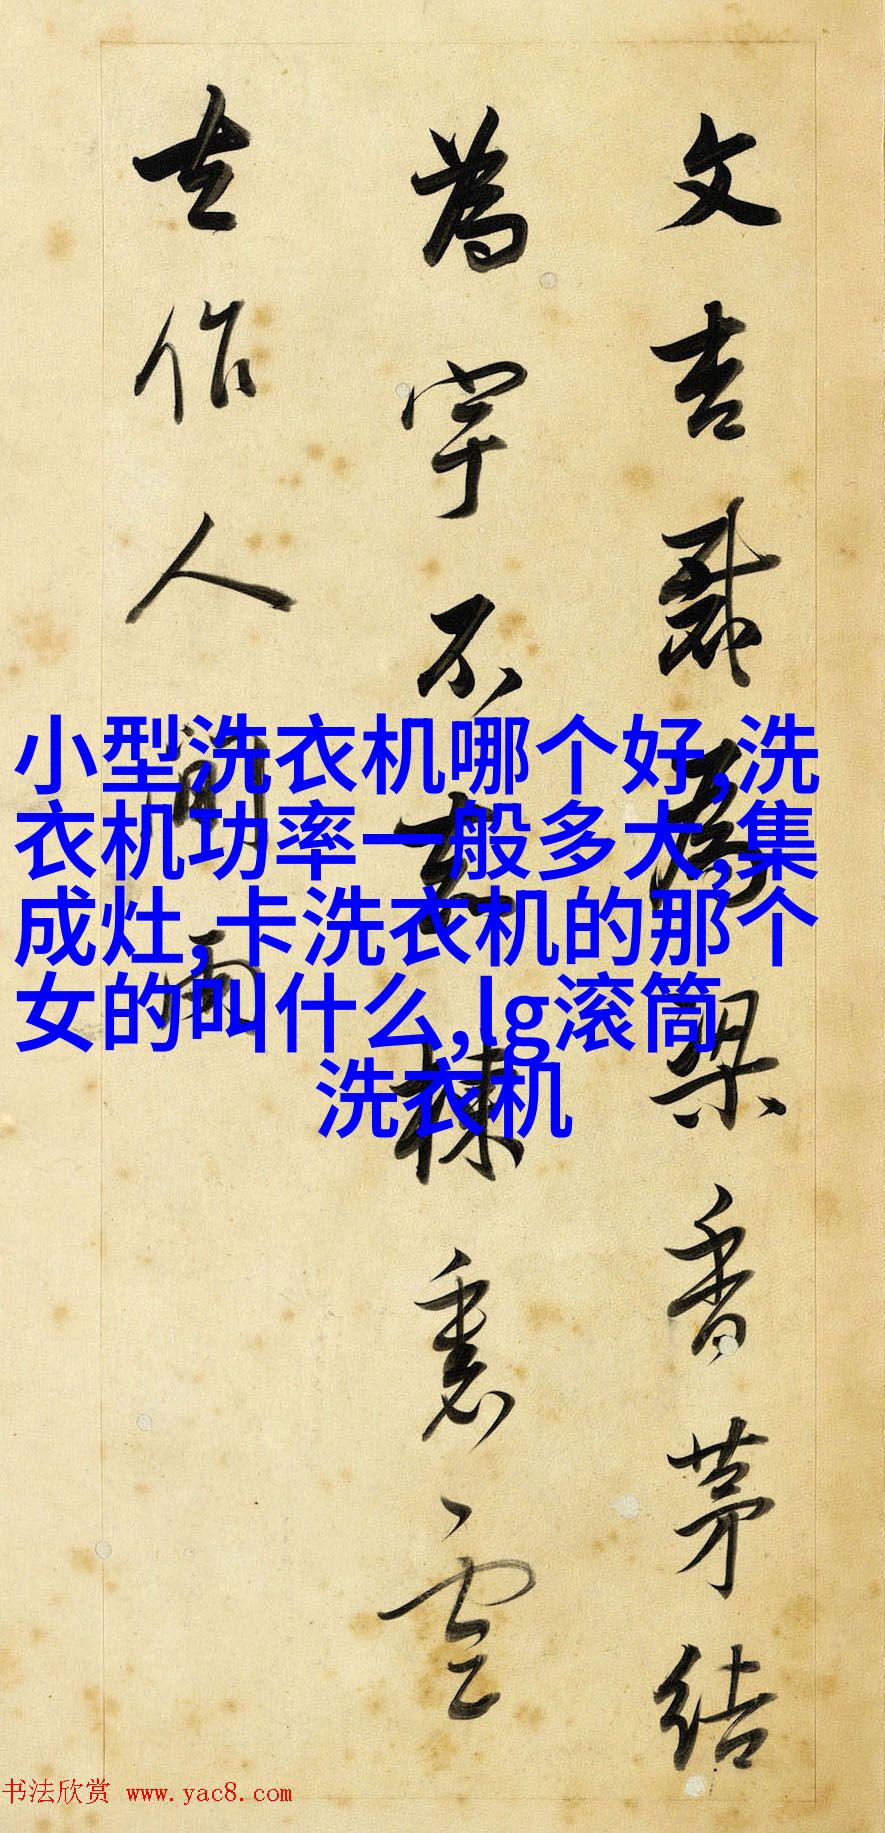 文杏裁爲梁香茅結
為宇不知棟裏雲
去作人間雨
小型洗衣机哪个好,洗
衣机功率一般多大,集
成灶,卡洗衣机的那个
女的叫什么,lg滚筒
洗衣机
书法欣赏 www.yac8.com